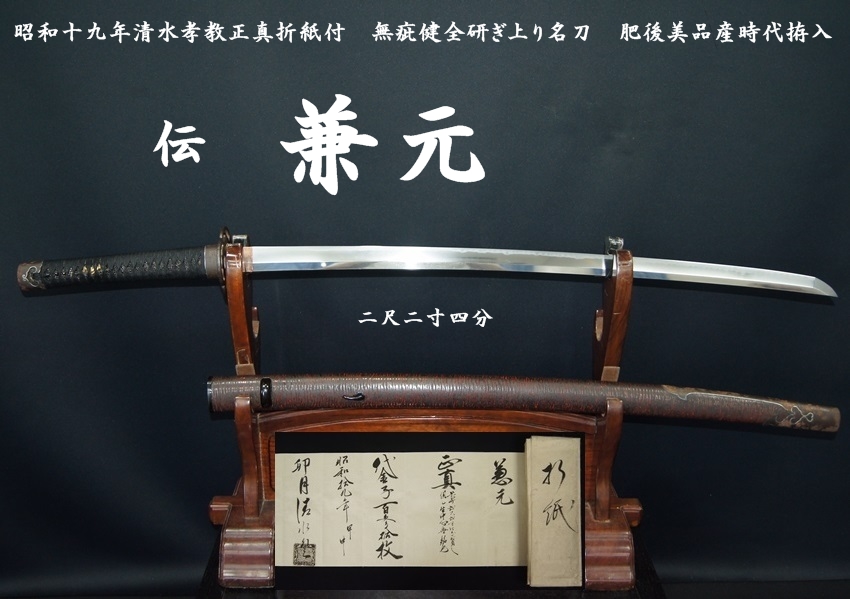 昭和十九年清水孝教正真折紙付　無疵健全研ぎ上り名刀　肥後美品産時代拵入
伝　兼元
二尺二寸四分
折紙
兼元
正真
代金子百五拾枚
昭和拾九年
卯月